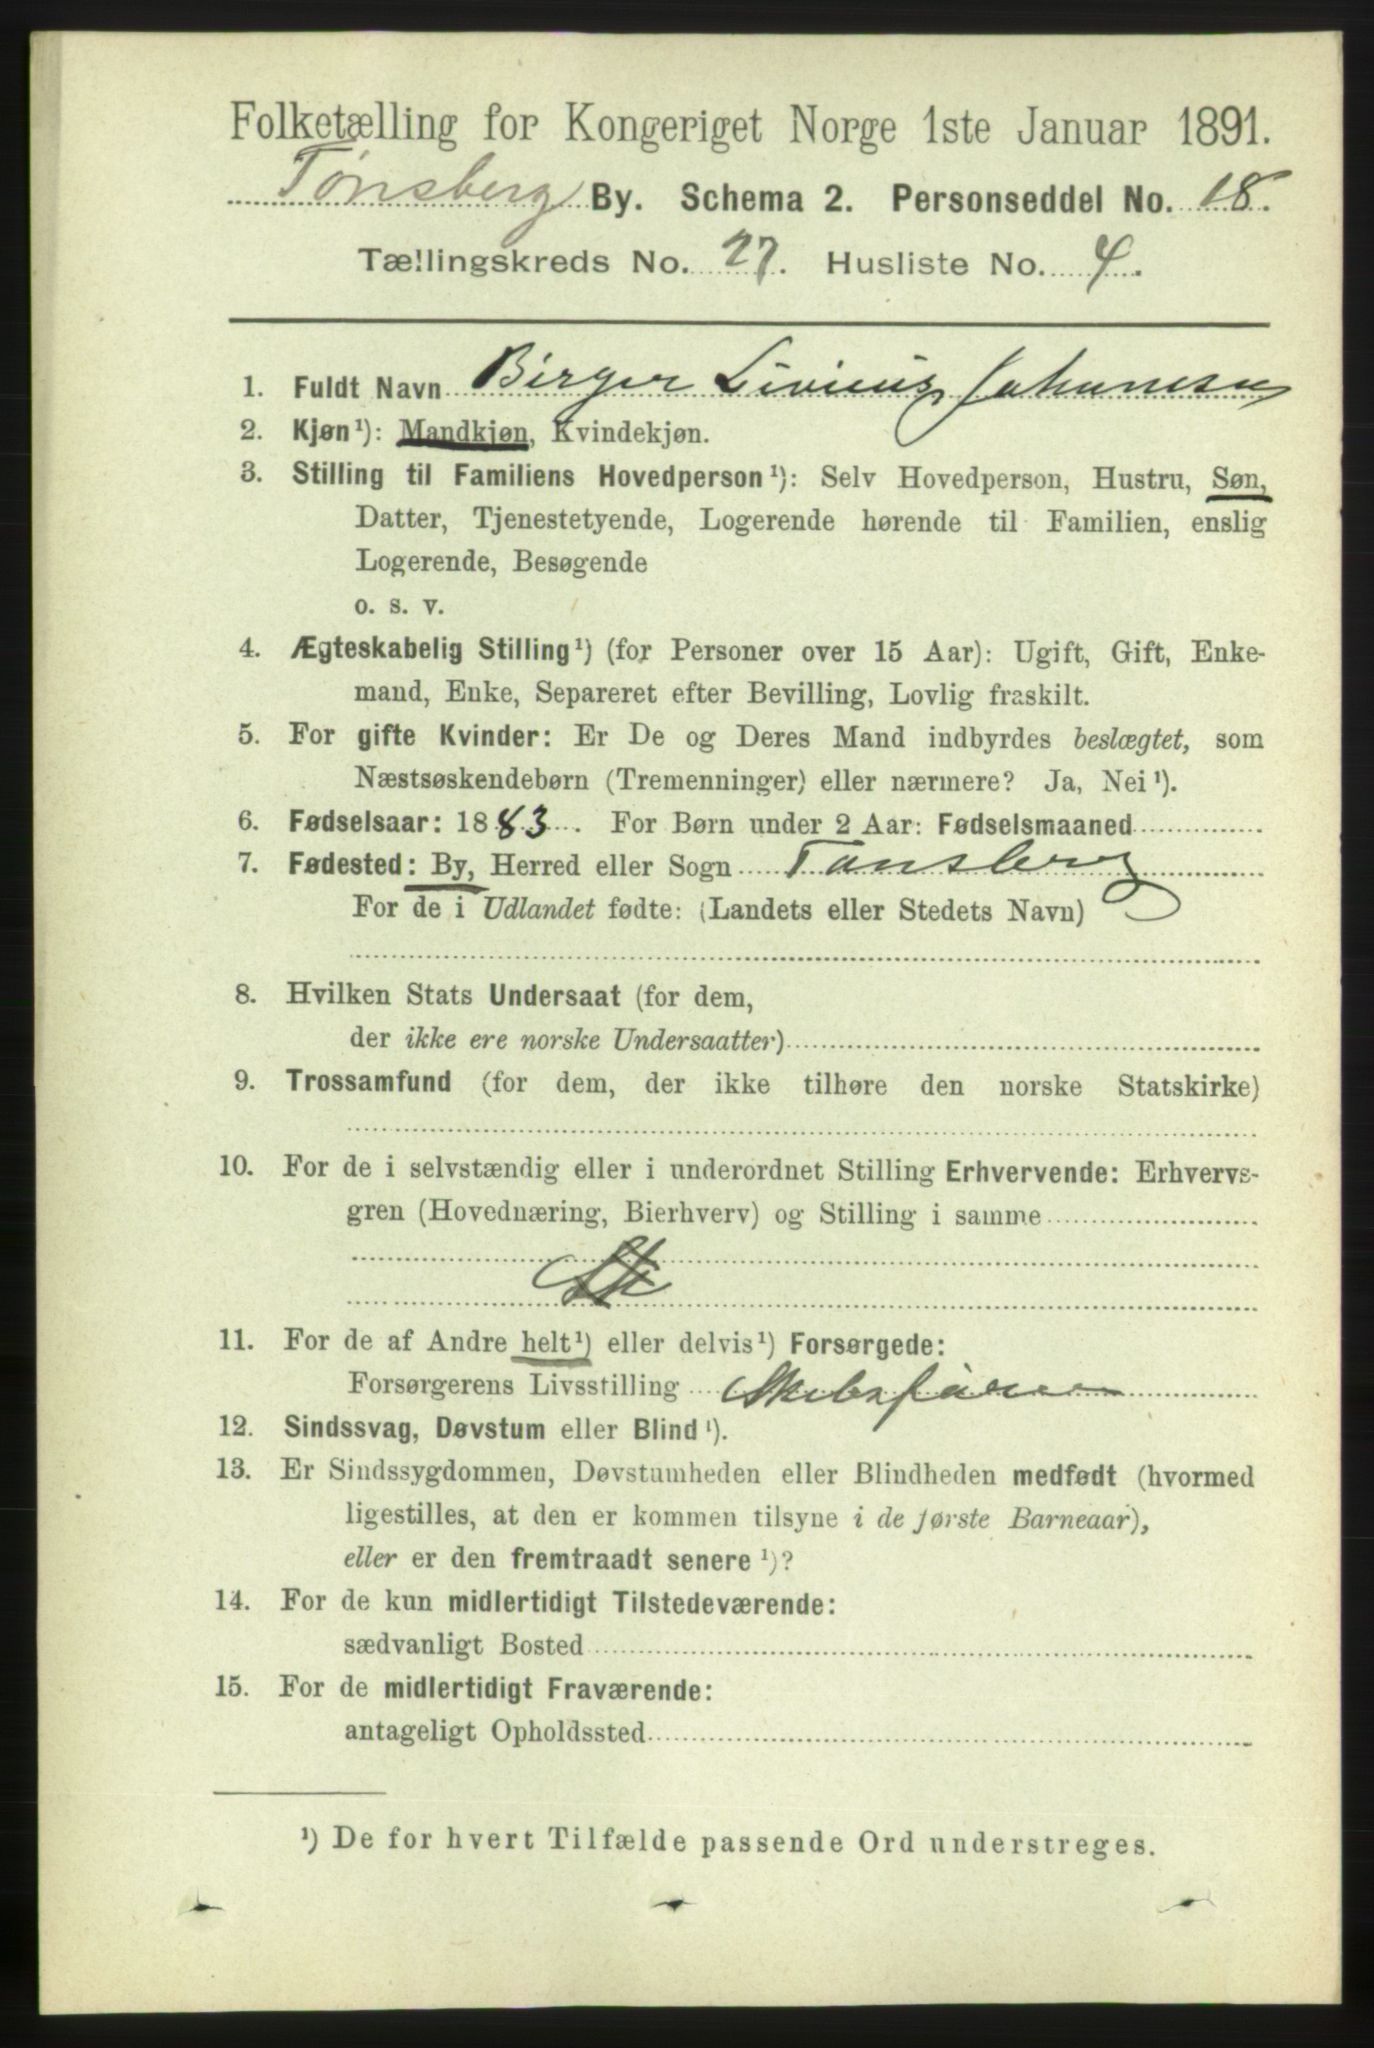 Folketælling for Kongeriget Norge 1ste Januar 1891.
Tønsberg By. Schema 2. Personseddel No. 18.
Tællingskreds No. 27. Husliste No. 4.
1. Fuldt Navn Birger Livius Johannesen
2. Kjøn¹): Mandkjøn, Kvindekjøn.
3. Stilling til Familiens Hovedperson¹): Selv Hovedperson, Hustru, Søn,
Datter, Tjenestetyende, Logerende hørende til Familien, enslig
Logerende, Besøgende
o. s. v.
4. Ægteskabelig Stilling¹) (for Personer over 15 Aar): Ugift, Gift, Enke-
mand, Enke, Separeret efter Bevilling, Lovlig fraskilt.
5. For gifte Kvinder: Er De og Deres Mand indbyrdes beslægtet, som
Næstsøskendebørn (Tremenninger) eller nærmere? Ja, Nei¹).
6. Fødselsaar: 1883. For Børn under 2 Aar: Fødselsmaaned
7. Fødested: By, Herred eller Sogn Tønsberg
For de i Udlandet fødte: (Landets eller Stedets Navn)
8. Hvilken Stats Undersaat (for dem,
der ikke ere norske Undersaatter)
9. Trossamfund (for dem, der ikke tilhøre den norske Statskirke)
10. For de i selvstændig eller i underordnet Stilling Erhvervende: Erhvervs-
gren (Hovednæring, Bierhverv) og Stilling i samme
11. For de af Andre helt¹) eller delvis¹) Forsørgede:
Forsørgerens Livsstilling Skibsfører
12. Sindssvag, Døvstum eller Blind¹).
13. Er Sindssygdommen, Døvstumheden eller Blindheden medfødt (hvormed
ligestilles, at den er kommen tilsyne i de første Barneaar),
eller er den fremtraadt senere¹)?
14. For de kun midlertidigt Tilstedeværende:
sædvanligt Bosted
15. For de midlertidigt Fraværende:
antageligt Opholdssted
¹) De for hvert Tilfælde passende Ord understreges.